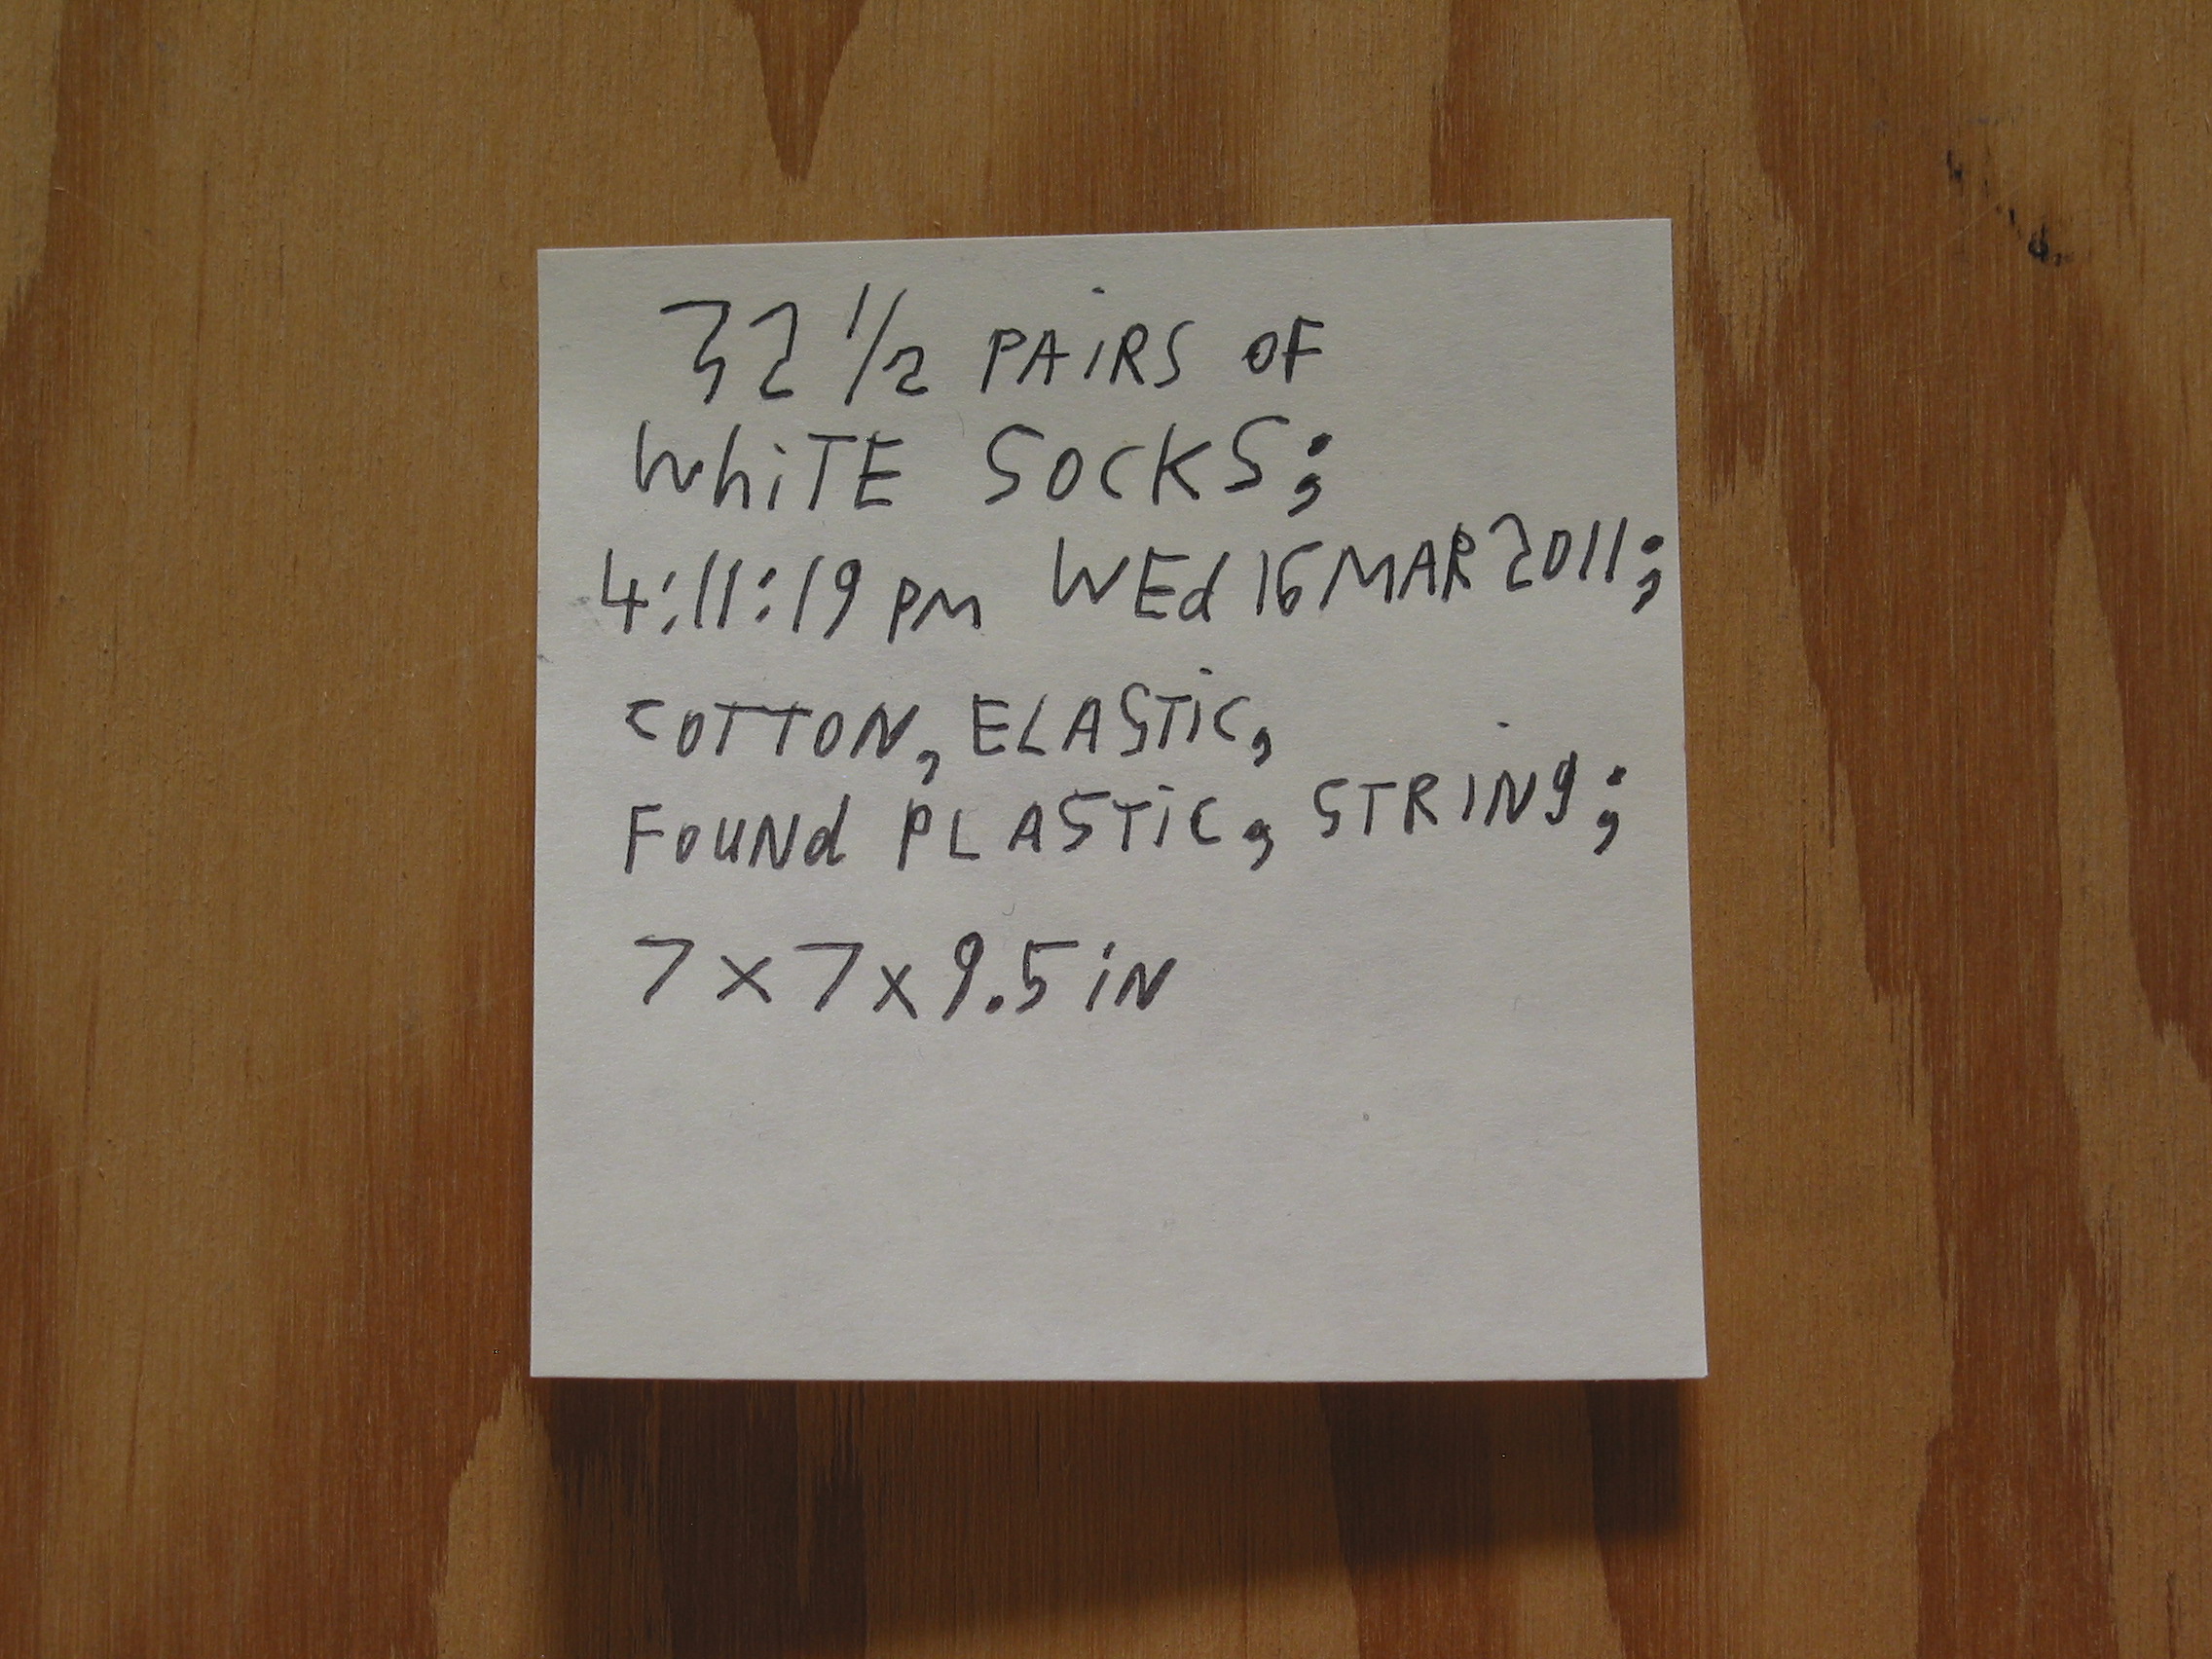 32 1/2 PAiRS OF
WhiTE SOCKS;
4:11:19 PM WEd 16 MAR 2011;
COTTON, ELASTiC,
FOUNd PLASTiC, STRING;
7 x 7 x 9.5 iN